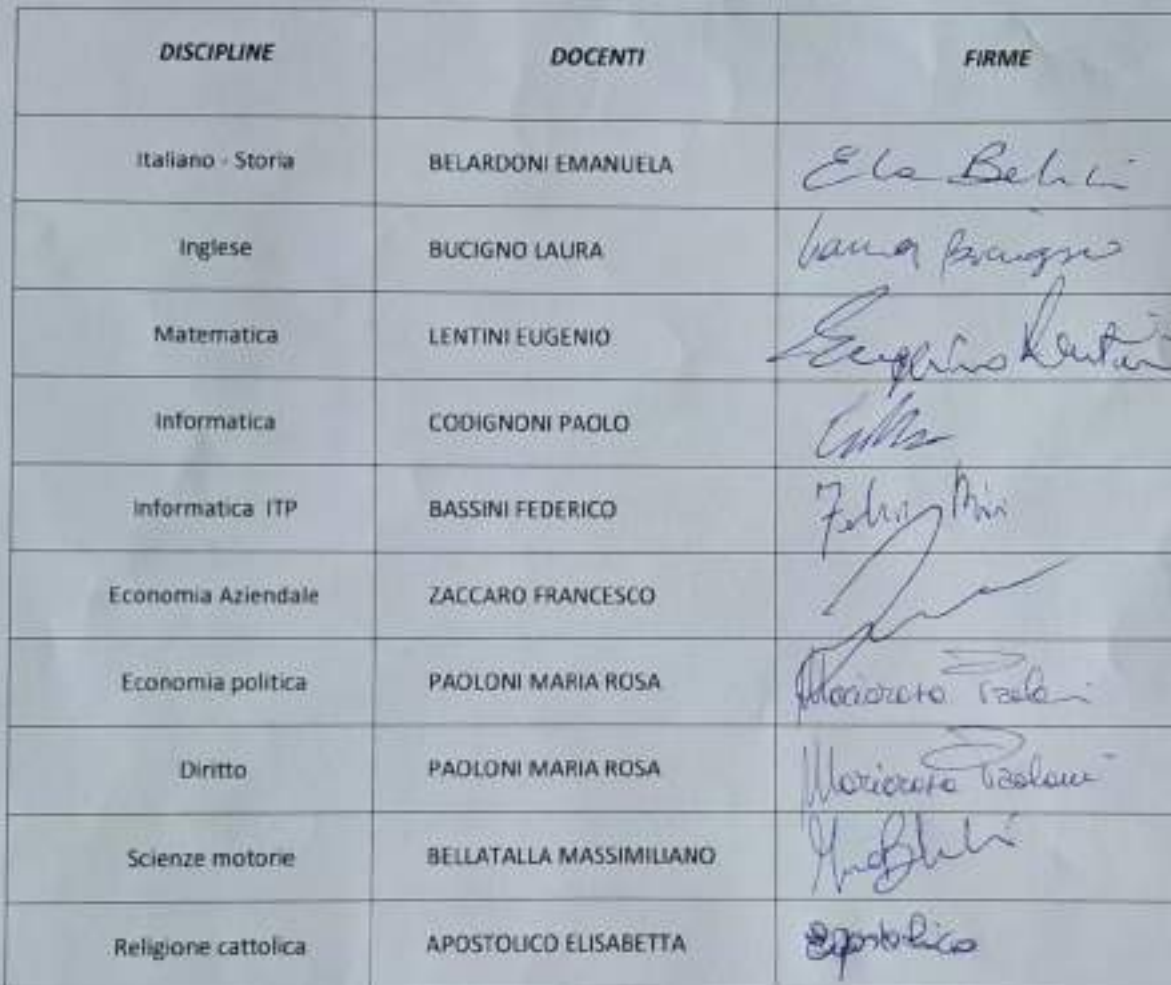 DISCIPLINE DOCENTI FIRME
Italiano - Storia BELARDONI EMANUELA
Inglese BUCIGNO LAURA Laura Bucigno
Matematica LENTINI EUGENIO Eugenio Lentini
Informatica CODIGNONI PAOLO
Informatica ITP BASSINI FEDERICO
Economia Aziendale ZACCARO FRANCESCO
Economia politica PAOLONI MARIA ROSA Mariarosa Paoloni
Diritto PAOLONI MARIA ROSA Mariarosa Paoloni
Scienze motorie BELLATALLA MASSIMILIANO
Religione cattolica APOSTOLICO ELISABETTA Apostolico